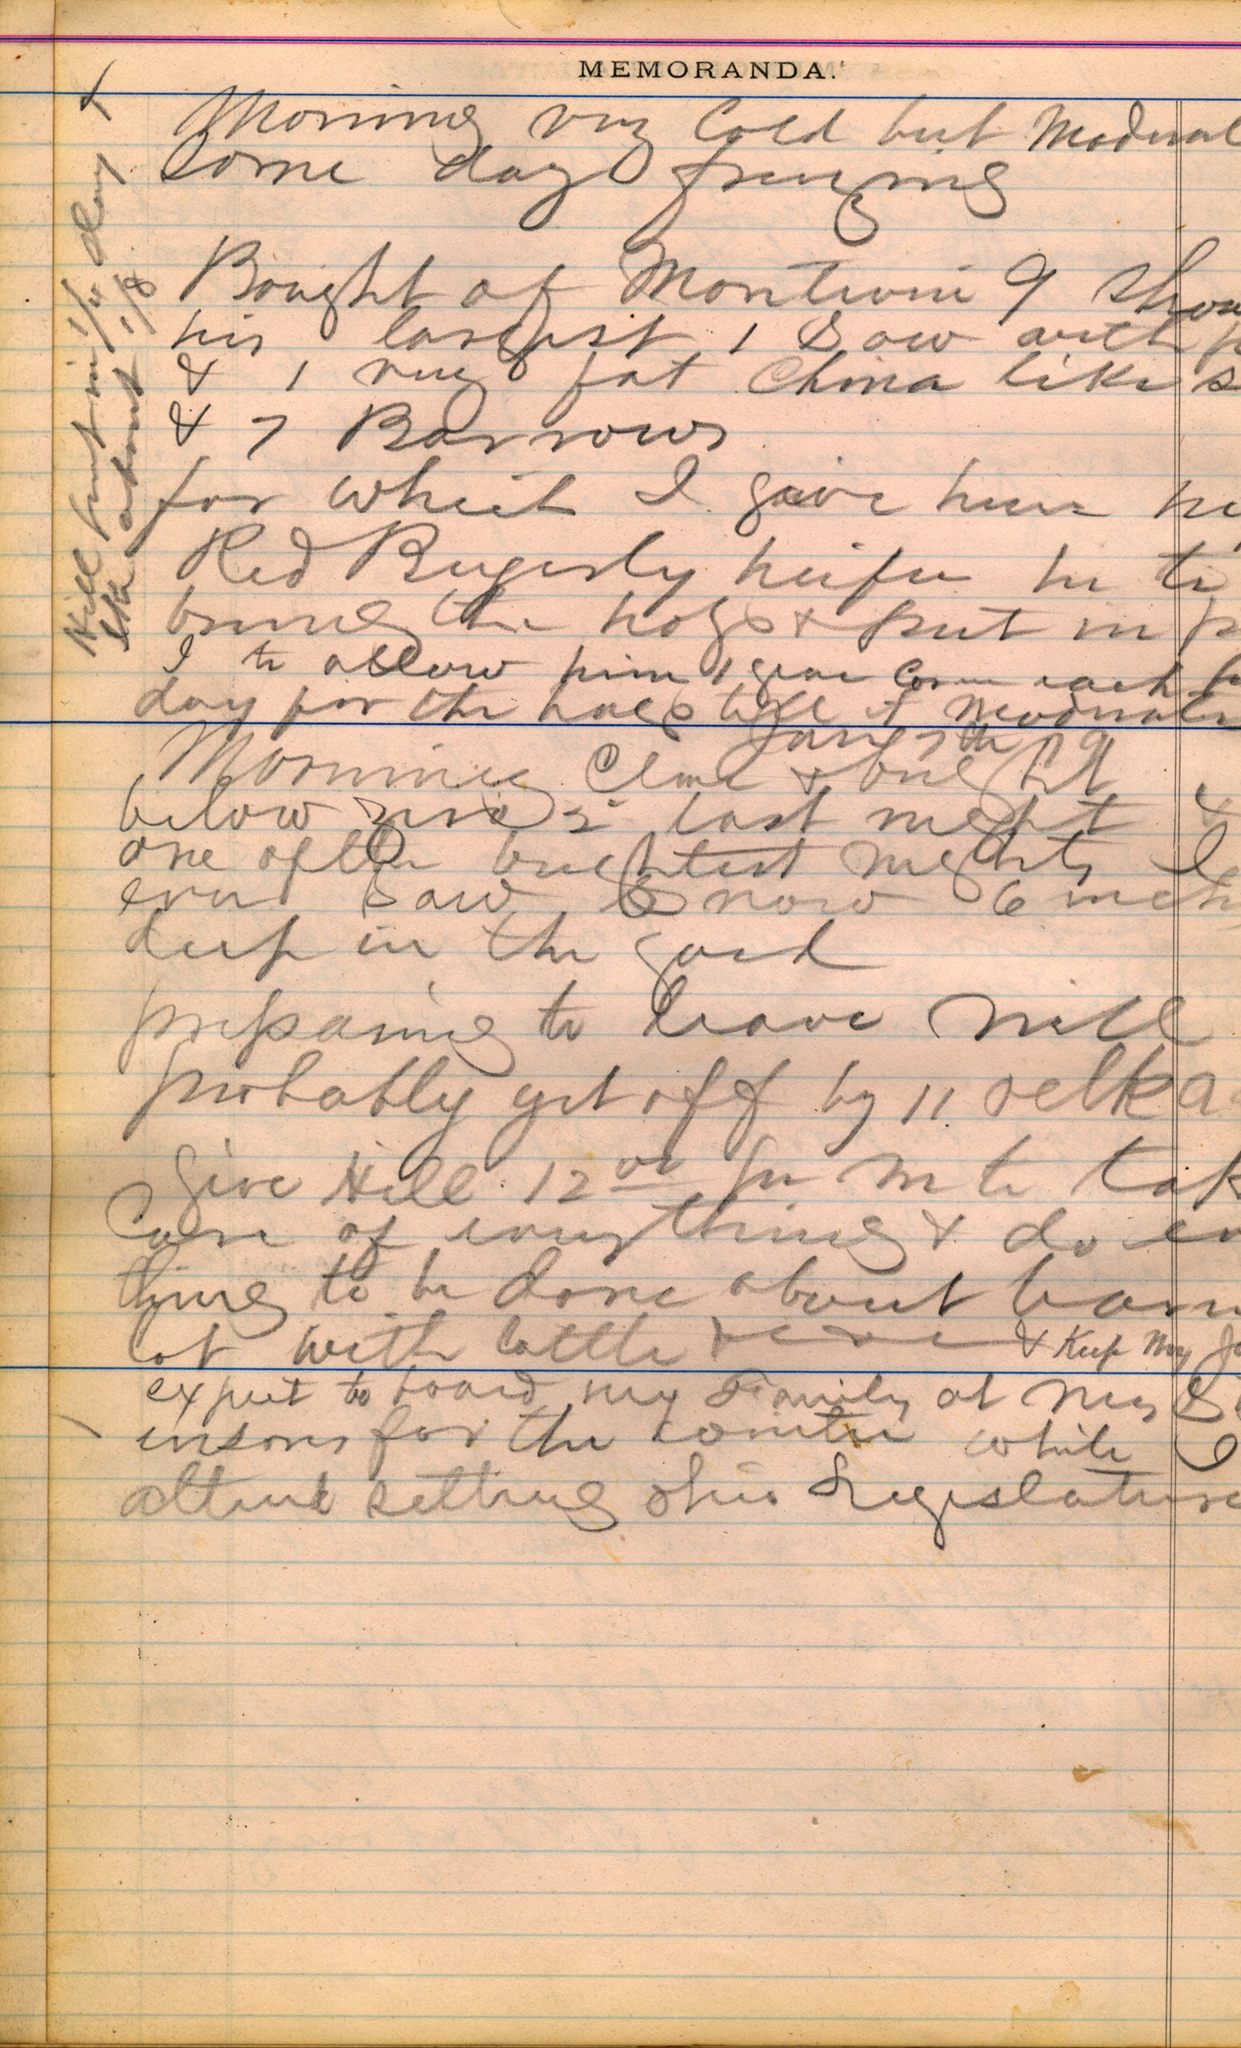 MEMORANDA.
Morning very Cold but Moderat
some day freezing
Bought of Montwin 9 Shou
his largest 1 Sow with p
& 1 very fat China like s
& 7 Barrows
for which I give him my
Red heifer he to
bring the hogs & put in p
I to allow him 1 Corn each
day for the hogs till it Moderates
Jany 7th
Morning Clear & bright
below zero 2 last night &
one of the brightest nights I
ever saw Snow 6 inch
deep in the
preparing to leave will
probably get off by 11 oclk a
Give Hill 12 00 per m to tak
Care of everything & do ev
thing to be done about barn
lot with cattle & Keep My
expect to board my Family at Mrs
insons for the winter while I
attend setting Ohio Legislature
Hill put in 1/2 day X
Elk about 1/8